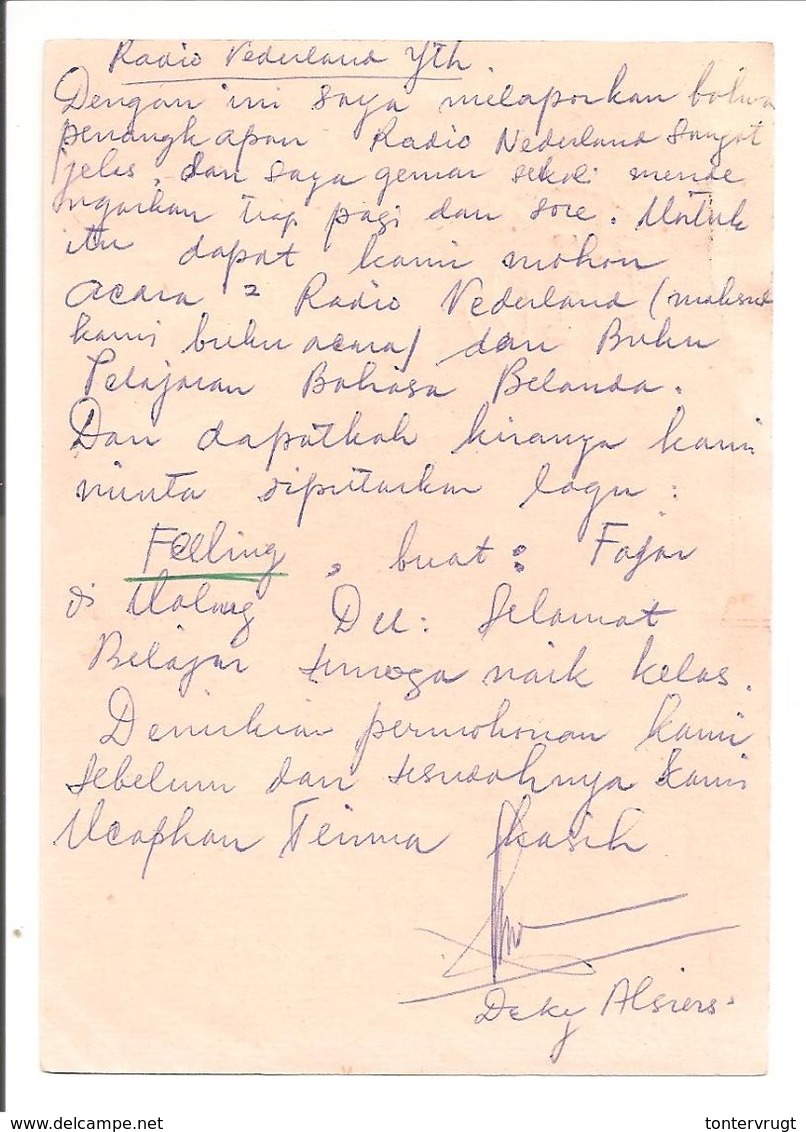 Radio Nederland Yth.
Dengan ini saya melaporkan bahwa
penangkapan Radio Nederland sangat
jelas, dan saya gemar sekali mende
ngarkan tiap pagi dan sore. Untuk
itu dapat kami mohon
acara 2 Radio Nederland (maksud
kami buku acara) dan Buku
Pelajaran Bahasa Belanda.
Dan dapatkah kiranya kami
minta diputarkan lagu :
Feeling, buat : Fajar
di Malang Del : Selamat
Belajar semoga naik kelas.
Demikian permohonan kami
sebelum dan sesudahnya kami
Ucapkan Terima kasih
Deky Alsiers.
tontervrugt